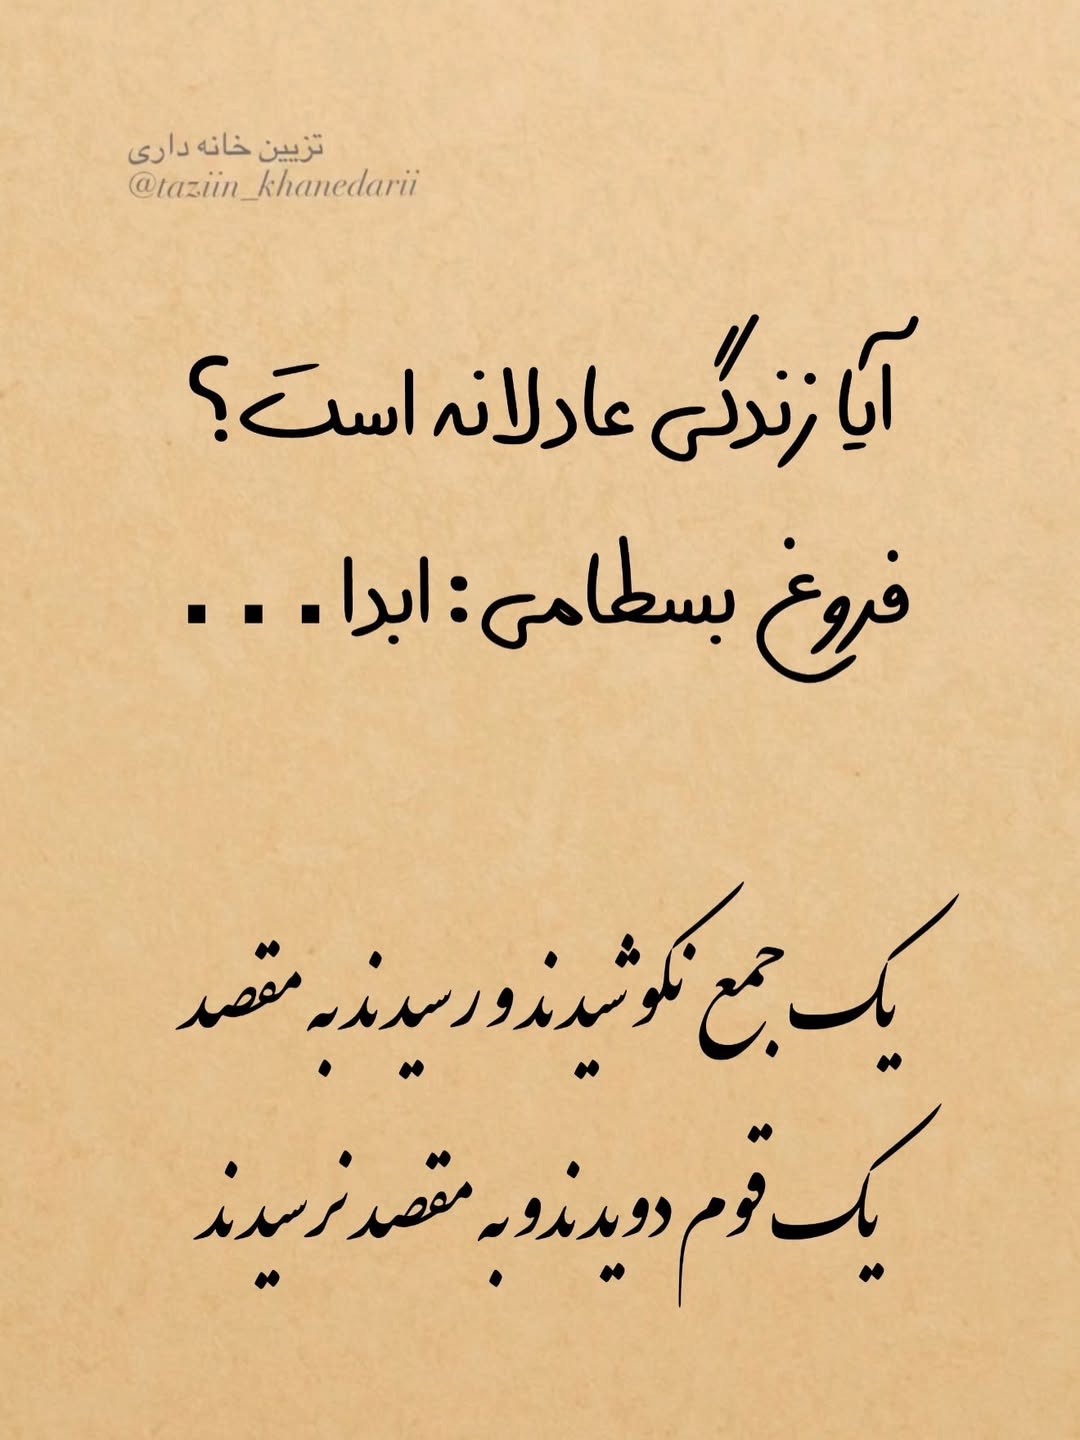 تزیین خانه داری
@taziin_khanedarii
آیا زندگی عادلانه است؟
فروغ بسطامی: ابدا...
یک جمع نکوشیدند و رسیدند به مقصد
یک قوم دویدند و به مقصد نرسیدند